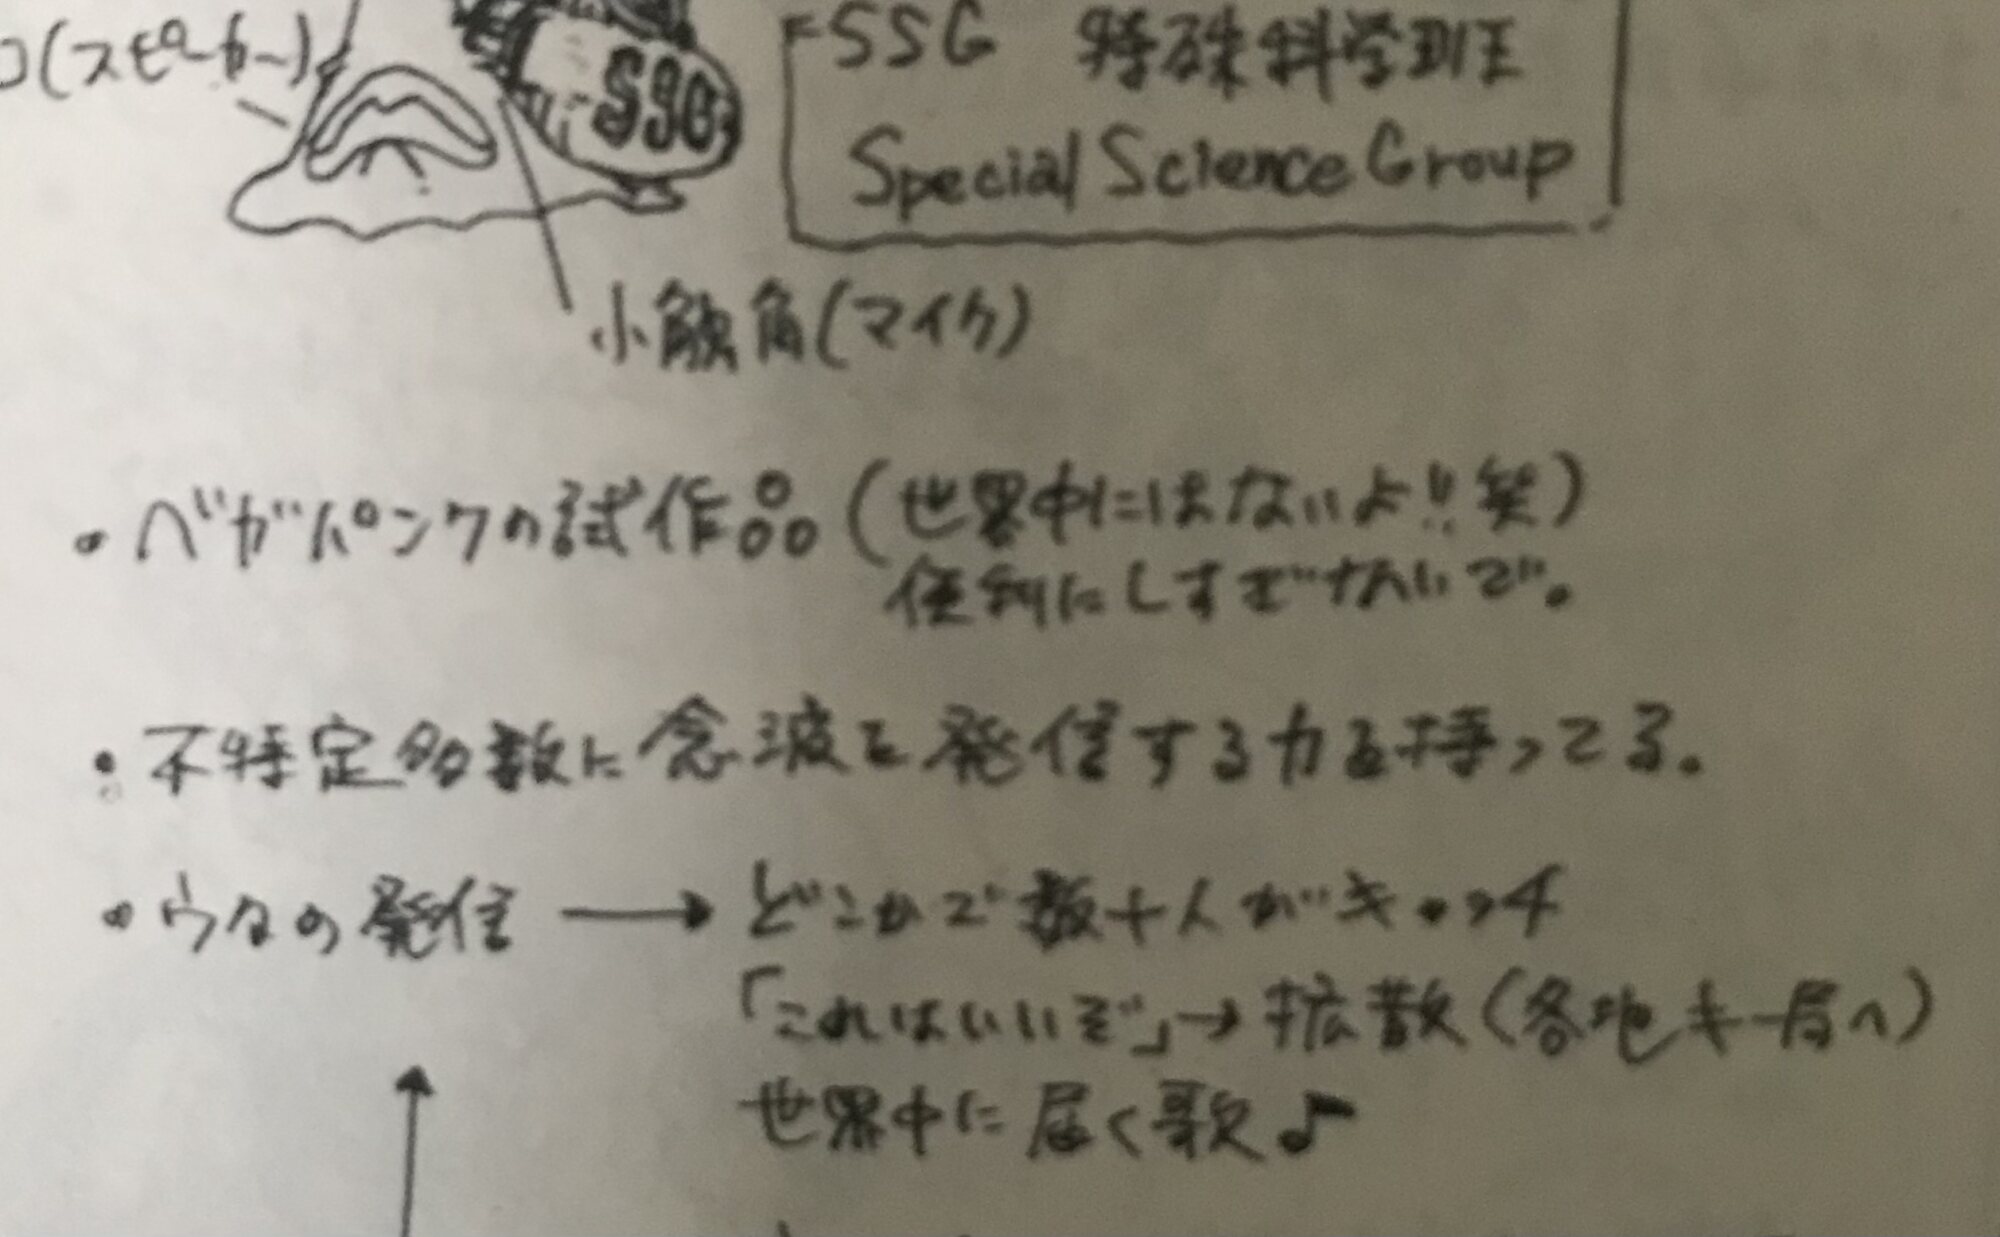 (スピーカー)
SSG
SSG 特殊科学班
Special Science Group
小触角(マイク)
・ベガパンクの試作品(世界中にはないよ!!笑)
便利にしすぎないで。
・不特定多数に念波を発信する力を持ってる。
・ウタの発信 → どこかで数十人がキャッチ
「これはいいぞ」→ 拡散(各地キー局へ)
世界中に届く歌♪